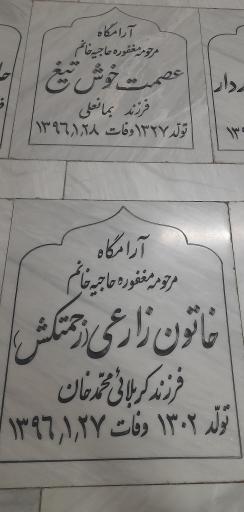 آرامگاه
مرحومه مغفوره حاجیه خانم
عصمت خوش تیغ
فرزند بمانعلی
تولد ۱۳۲۷ وفات ۱۳۹۶,۱,۲۸
ردار
آرامگاه
مرحومه مغفوره حاجیه خانم
خاتون زارعی (زحمتکش)
فرزند کربلائی محمّدخان
تولّد ۱۳۰۲ وفات ۱۳۹۶,۱,۲۷